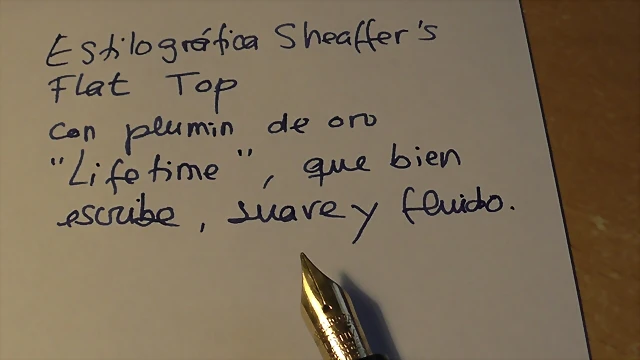 Estilográfica Sheaffer's
Flat Top
con plumin de oro
"Lifetime", que bien
escribe, suave y fluido.